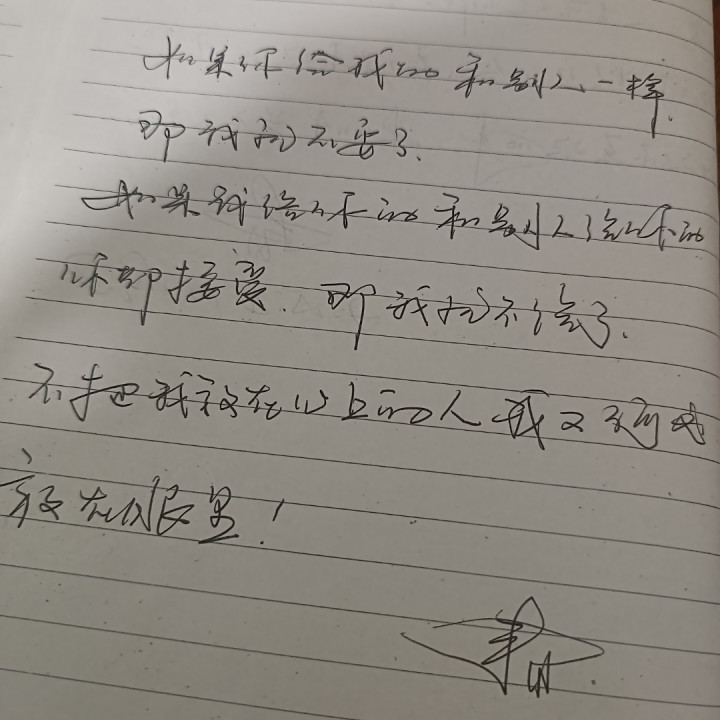 如果你给我的和别人一样.
那我就不要了.
如果我给你的和别人给你的
你都接受.那我就不给了.
不把我放在心上的人我又何必
放在眼里!